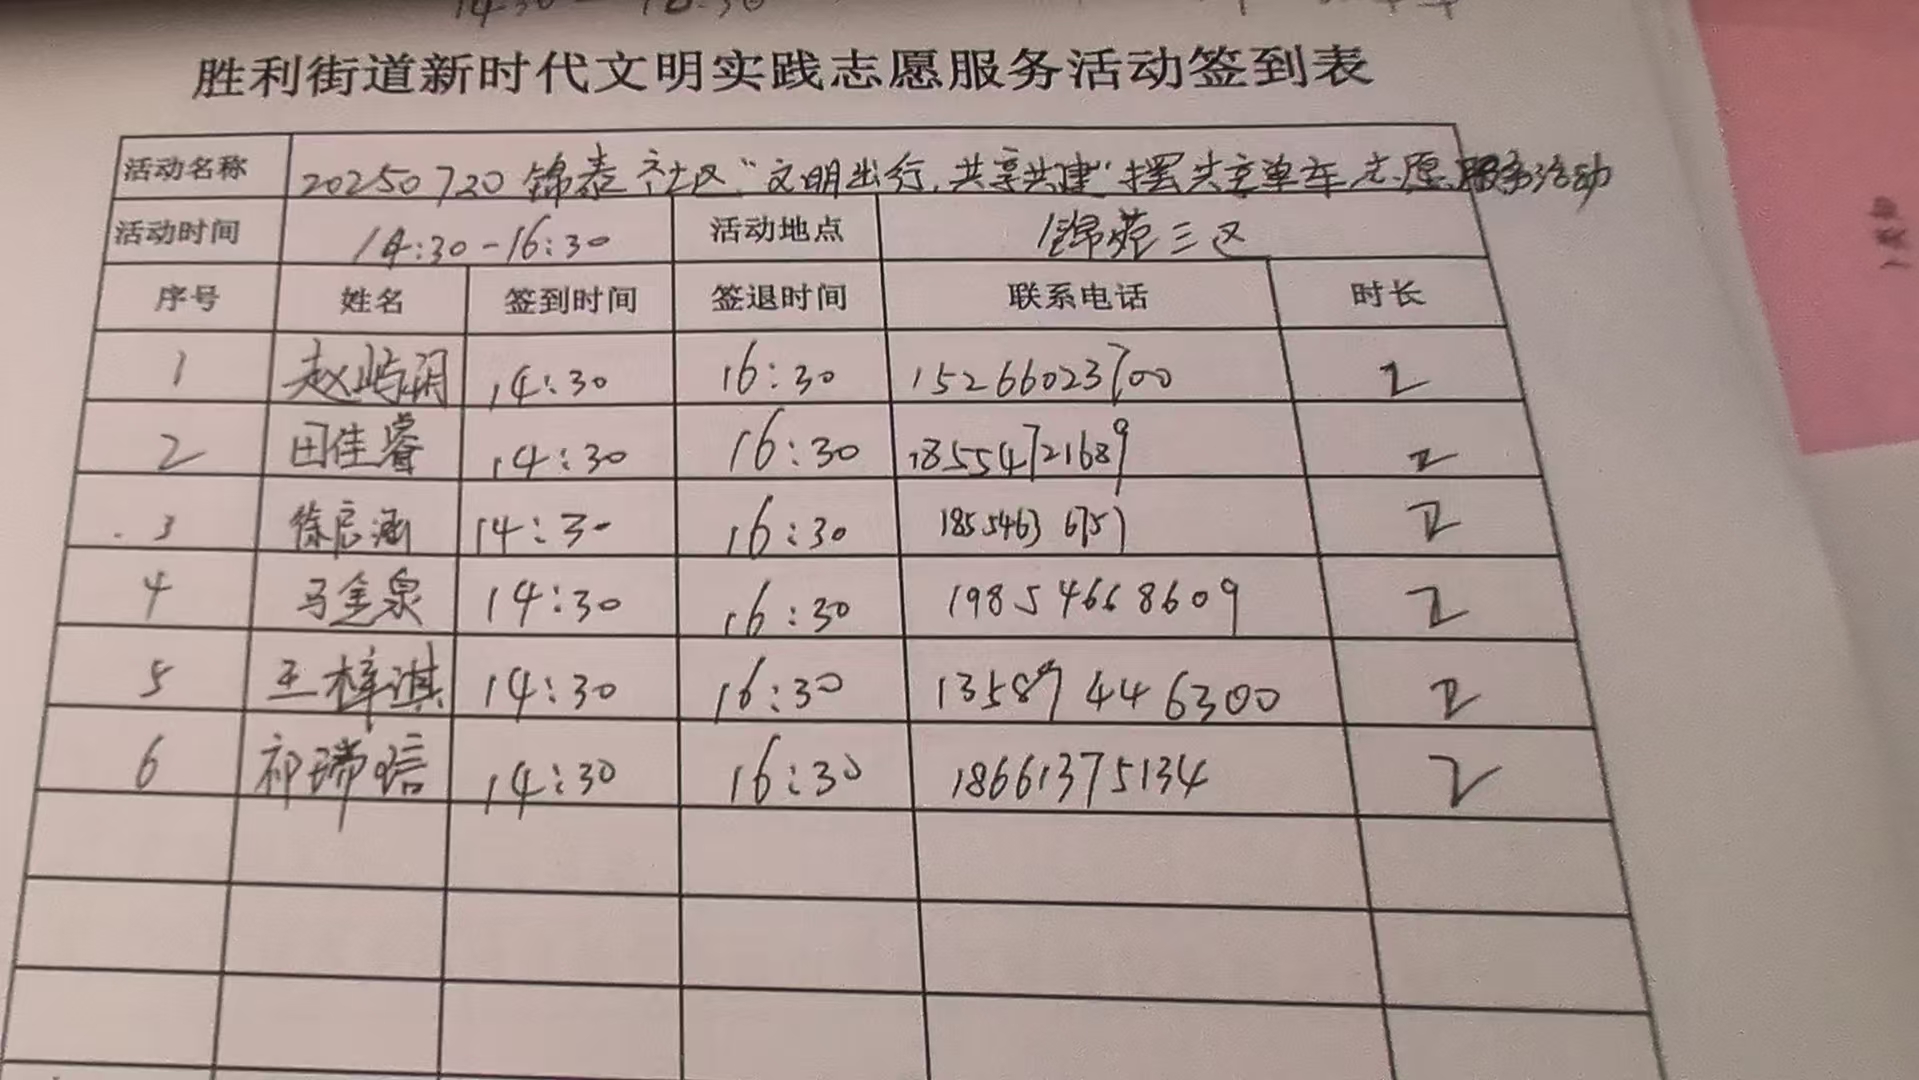 14:30 - 16:30
胜利街道新时代文明实践志愿服务活动签到表
活动名称 20250720锦泰社区"文明出行,共享共建"摆共享单车志愿服务活动
活动时间 14:30-16:30 活动地点 锦苑三区
序号 姓名 签到时间 签退时间 联系电话 时长
1 赵屿涵 14:30 16:30 15266023700 2
2 田佳睿 14:30 16:30 18554721689 2
3 徐启涵 14:30 16:30 18554636751 2
4 马金泉 14:30 16:30 19854668609 2
5 王梓淇 14:30 16:30 13589446300 2
6 祁瑞晗 14:30 16:30 18661375134 2